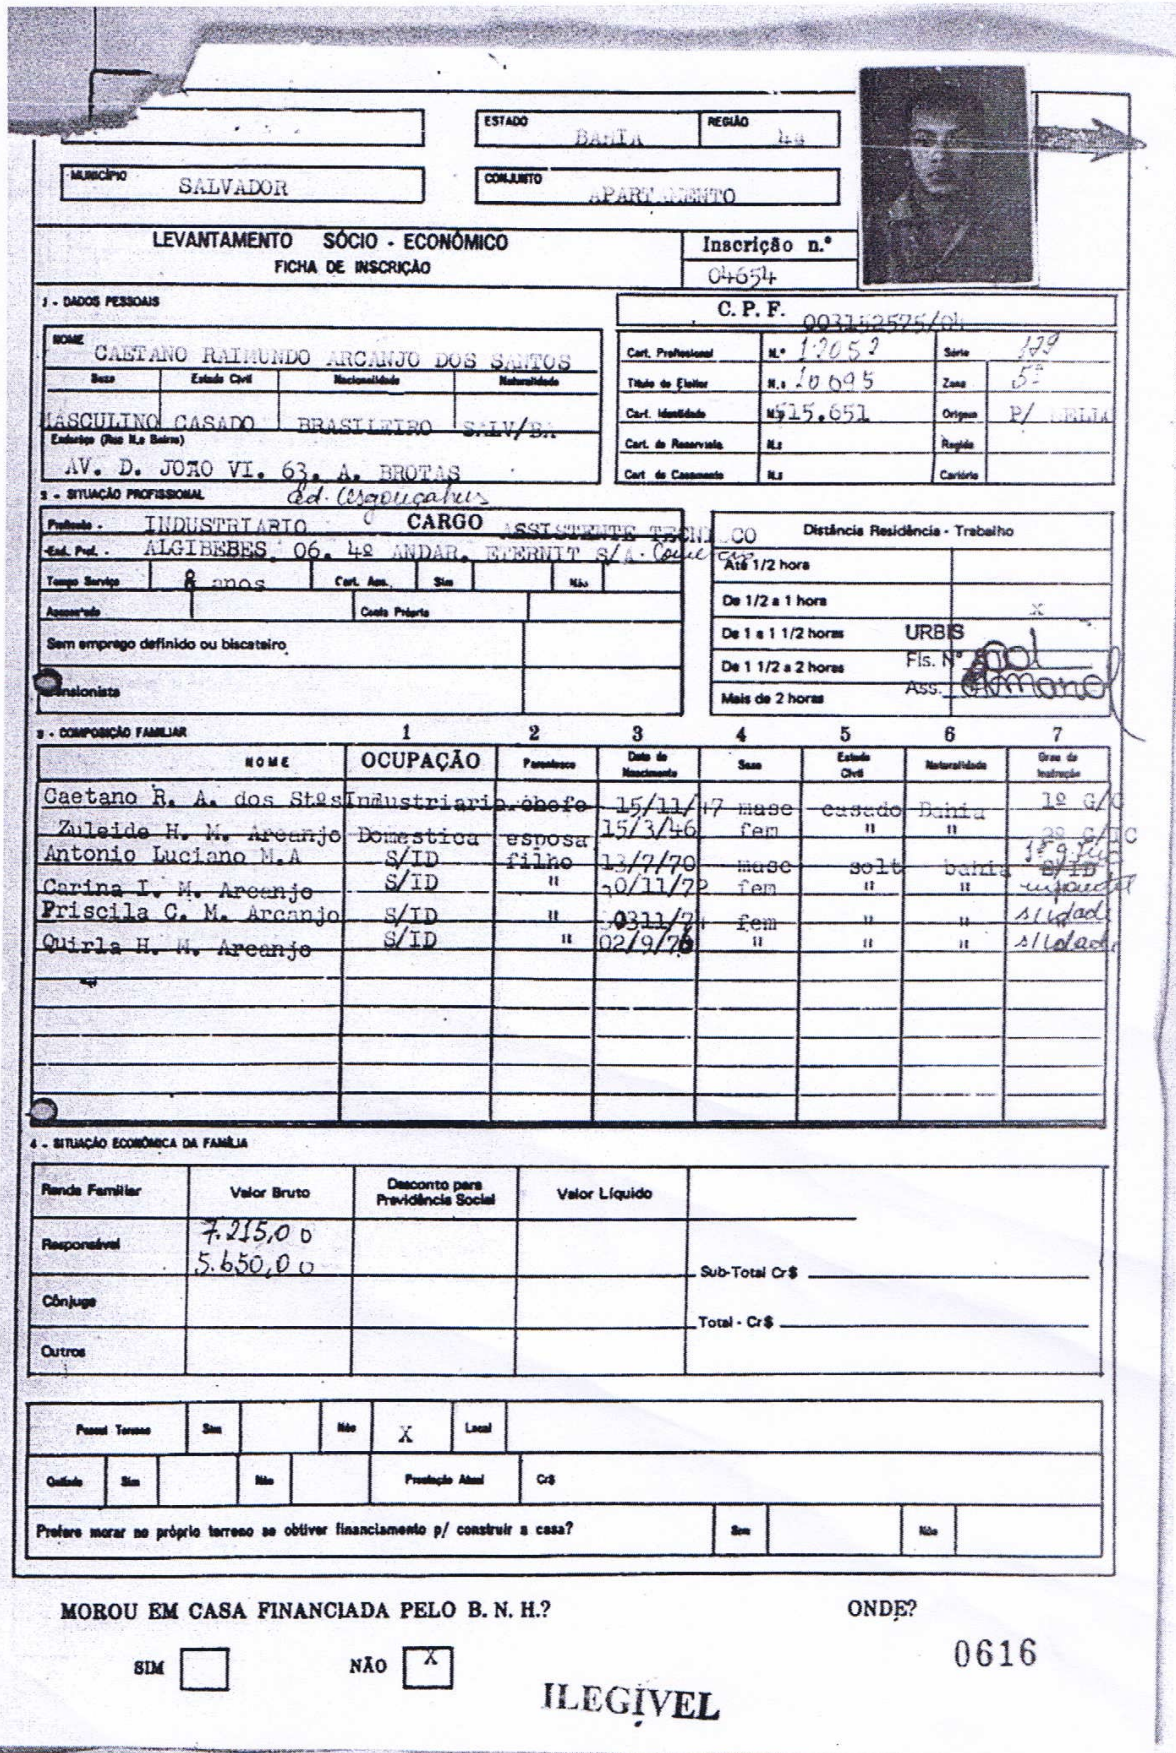 ESTADO BAHIA REGIÃO 4a
MUNICÍPIO SALVADOR
CONJUNTO APARTAMENTO
LEVANTAMENTO SÓCIO - ECONÔMICO
FICHA DE INSCRIÇÃO
Inscrição n.º
04654
1 - DADOS PESSOAIS
C. P. F. 003152575/04
NOME
CAETANO RAIMUNDO ARCANJO DOS SANTOS
Sexo Estado Civil Nacionalidade Naturalidade
MASCULINO CASADO BRASILEIRO SALV/BA
Endereço (Rua N.o Bairro)
AV. D. JOÃO VI. 63. A. BROTAS
Cart. Profissional N.º 17052 Série 179
Título de Eleitor N.º 10695 Zona 5ª
Cart. Identidade N.º 515.651 Origem P/
Cart. de Reservista N.º Região
Cart de Casamento N.º Cartório
2 - SITUAÇÃO PROFISSIONAL
Ed.
Profissão - INDUSTRIARIO CARGO ASSISTENTE TECNICO
End. Prof. - ALGIBEBES, 06. 4º ANDAR. ETERNIT S/A.
Tempo Serviço 8 anos Cart. Ass. Sim Não
Aposentado Conta Própria
Sem emprego definido ou biscateiro
Pensionista
Distância Residência - Trabalho
Até 1/2 hora
De 1/2 a 1 hora x
De 1 a 1 1/2 horas
De 1 1/2 a 2 horas
Mais de 2 horas
URBIS
Fls. Nº
Ass.
3 - COMPOSIÇÃO FAMILIAR
1 2 3 4 5 6 7
NOME OCUPAÇÃO Parentesco Data de Nascimento Sexo Estado Civil Naturalidade Grau de Instrução
Caetano R. A. dos Stºs Industriario chefe 15/11/47 masc casado Bahia 1º G/C
Zuleide H. M. Arcanjo Domestica esposa 15/3/46 fem " " 2º G/IC
Antonio Luciano M.A S/ID filho 13/7/70 masc solt bahia S/ID
Carina I. M. Arcanjo S/ID " 30/11/72 fem " "
Priscila C. M. Arcanjo S/ID " fem " " s/idade
Quirla H. M. Arcanjo S/ID " 02/9/76 " " " s/idade
4 - SITUAÇÃO ECONÔMICA DA FAMÍLIA
Renda Familiar Valor Bruto Desconto para Previdência Social Valor Líquido
Responsável 7.215,00
5.650,00
Sub-Total Cr$
Cônjuge
Total - Cr$
Outros
Possui Terreno Sim Não X Local
Quitado Sim Não Prestação Atual Cr$
Prefere morar no próprio terreno se obtiver financiamento p/ construir a casa? Sim Não
MOROU EM CASA FINANCIADA PELO B. N. H.? ONDE?
SIM NÃO X
0616
ILEGÍVEL